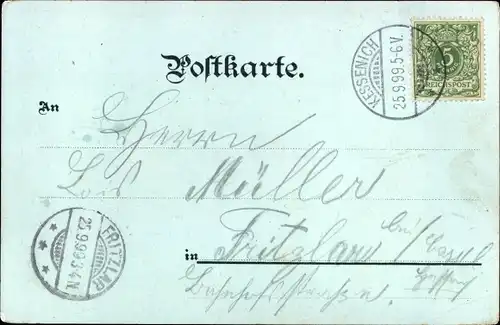 Postkarte.
KESSENICH
25.9.99.5-6V.
5
REICHSPOST
An
Herrn
Müller
in Fritzlar bei Cassel
Hessen
Bahnhofstrasse
FRITZLAR
25.9.99 3-4N